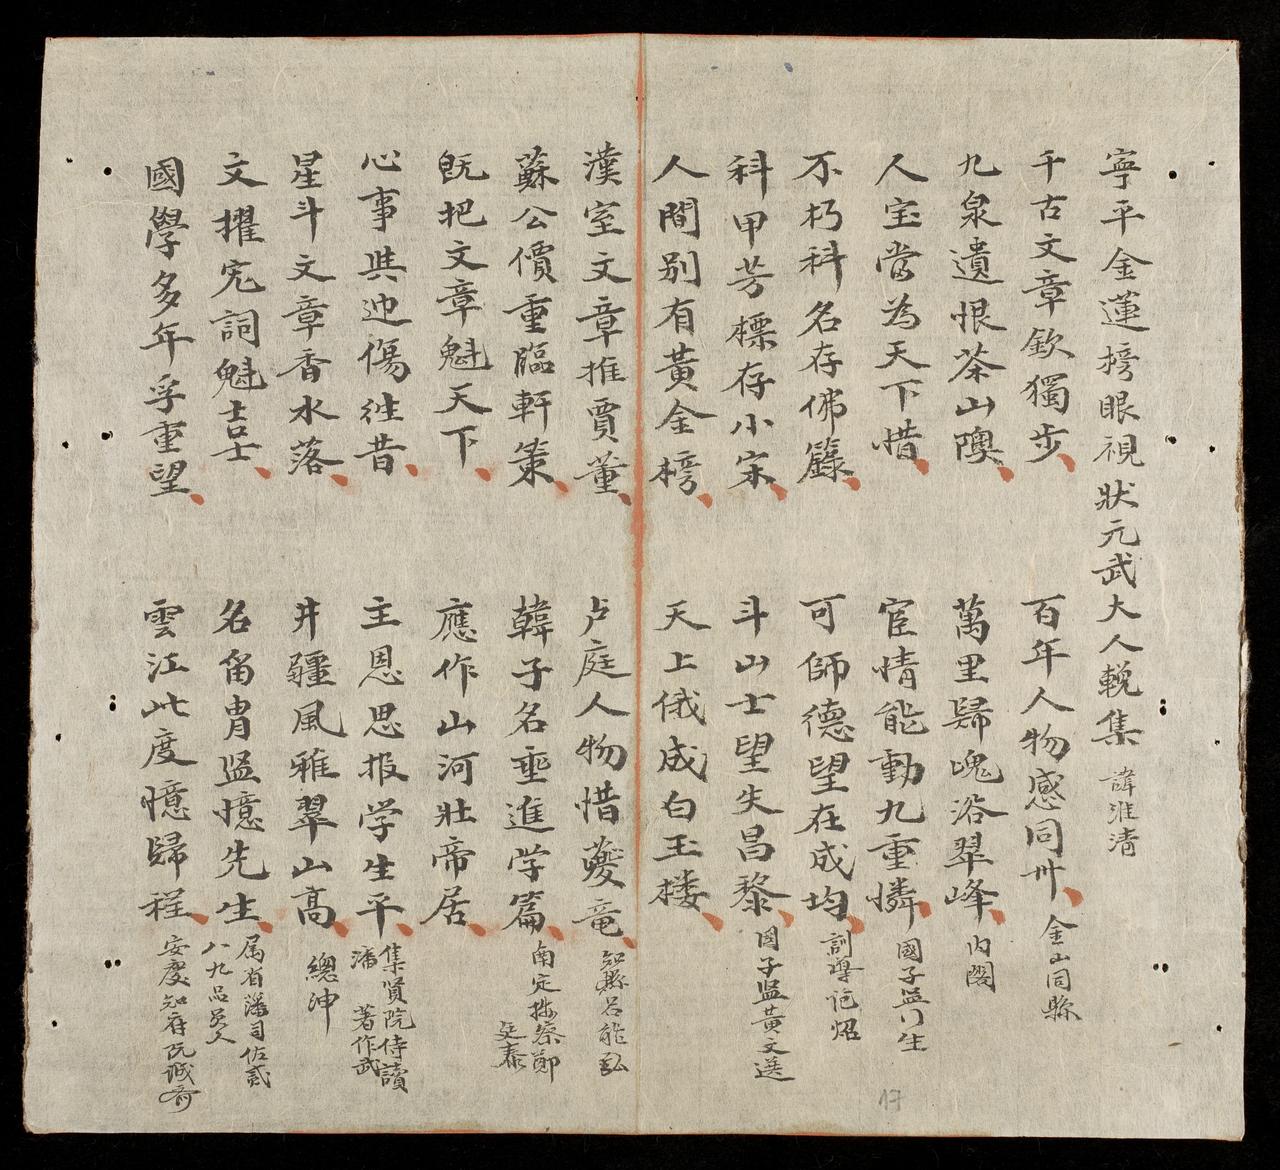 寧平金蓮榜眼視狀元武大人輓集 諱淮清
千古文章欽獨步 百年人物感同卅 金山同縣
九泉遺恨茶山隩 萬里歸魂浴翠峰 內閣
人宝當為天下惜 宦情能動九重憐 國子監門生
不朽科名存佛籙 可師德望在成均 訓導范炤
科甲芳標存小宋 斗山士望失昌黎 國子监黃文選
人間別有黃金榜 天上俄成白玉楼
漢室文章推賈董 卢庭人物惜夔竜 知縣呂能弘
蘇公價重臨軒策 韓子名垂進学篇 南定按察鄭廷泰
既把文章魁天下 應作山河壯帝居
心事㒷迎傷徃昔 主恩思报学生平 集賢院侍讀潘 著作武
星斗文章香水落 井疆風雅翠山高 總沖
文擢宏詞魁吉士 名留胄监憶先生 属省藩司佐貳八九品員人
國學多年孚重望 雲江此度憶歸程 安慶知府阮誠齋